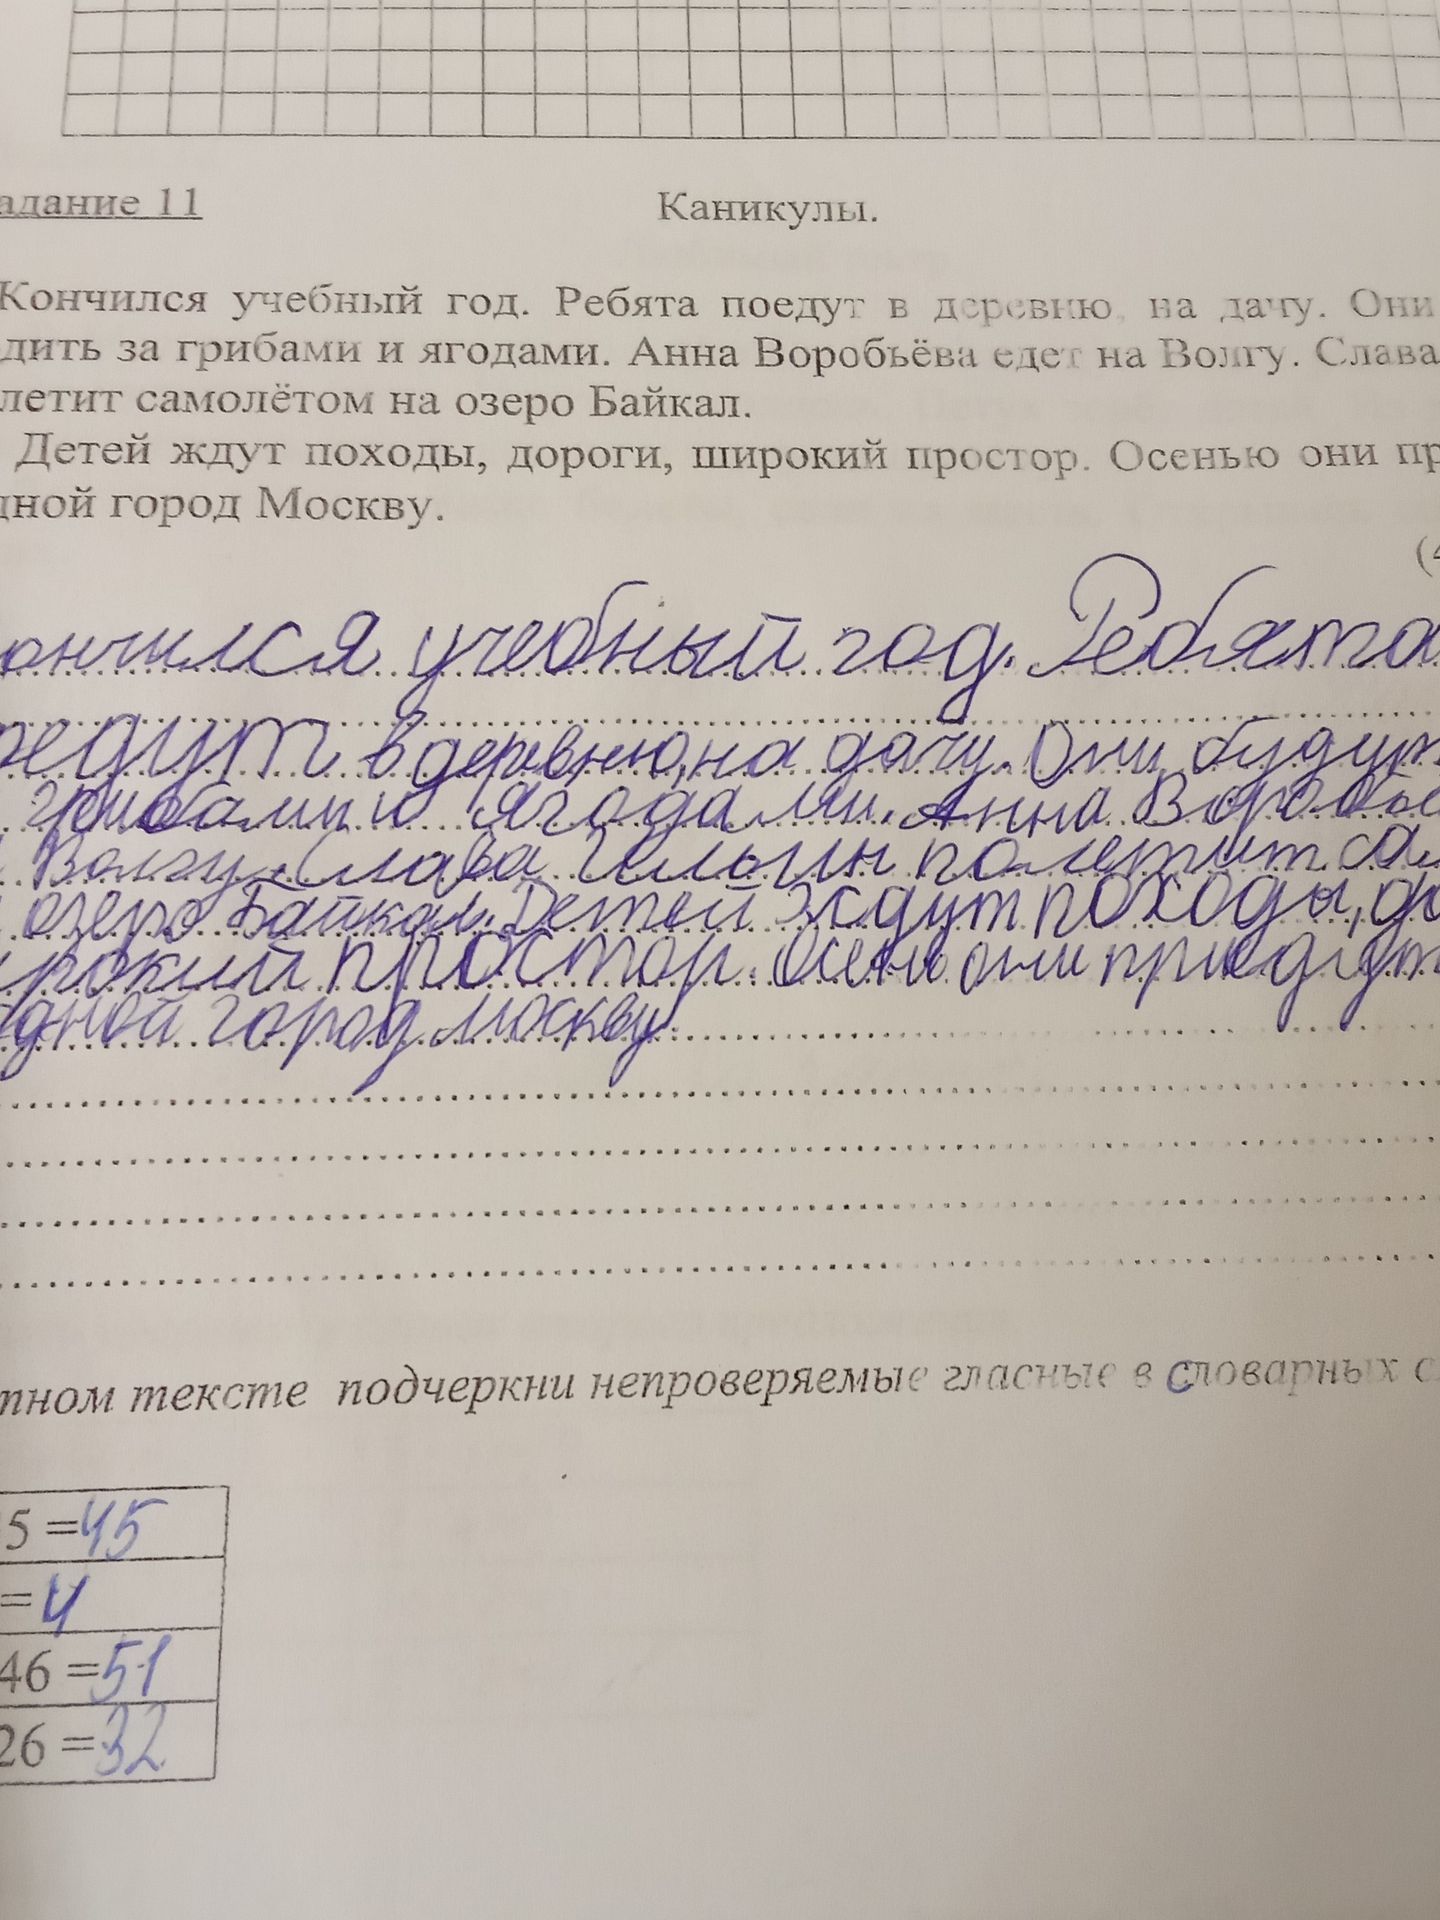 адание 11
Каникулы.
Кончился учебный год. Ребята поедут в деревню, на дачу. Они
дить за грибами и ягодами. Анна Воробьёва едет на Волгу. Слава
летит самолётом на озеро Байкал.
Детей ждут походы, дороги, широкий простор. Осенью они пр
дной город Москву.
(4
ончился учебный год. Ребята
едут в деревню, на дачу. Они будут
грибами и ягодами. Анна Воробье
Волгу. Слава полетит сам
озеро Байкал. Детей ждут походы, до
ирокий простор. Осенью они приедут
одной город Москву.
тном тексте подчеркни непроверяемые гласные в словарных с
5 =45
=4
46 =51
26 =32